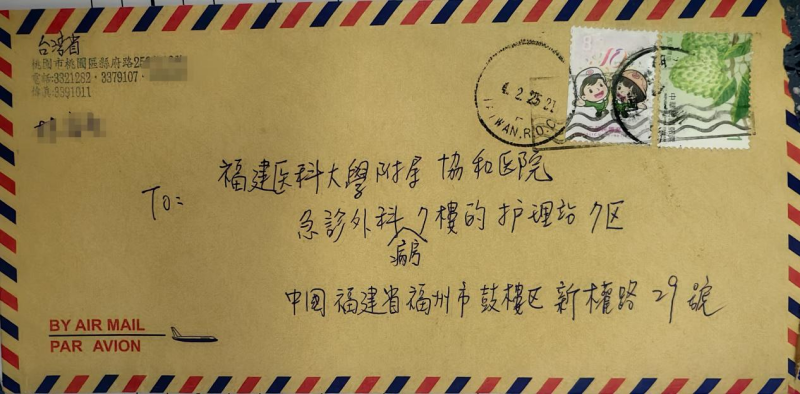 台湾省
桃園市桃園區縣府路25
電話:3321282·3379107·
傳真:3391011
4.2.25 21
WAN.R.O.C
To: 福建医科大學附属 協和医院
急診外科病房7樓的护理站7区
中国福建省福州市鼓樓区新權路29號
BY AIR MAIL
PAR AVION